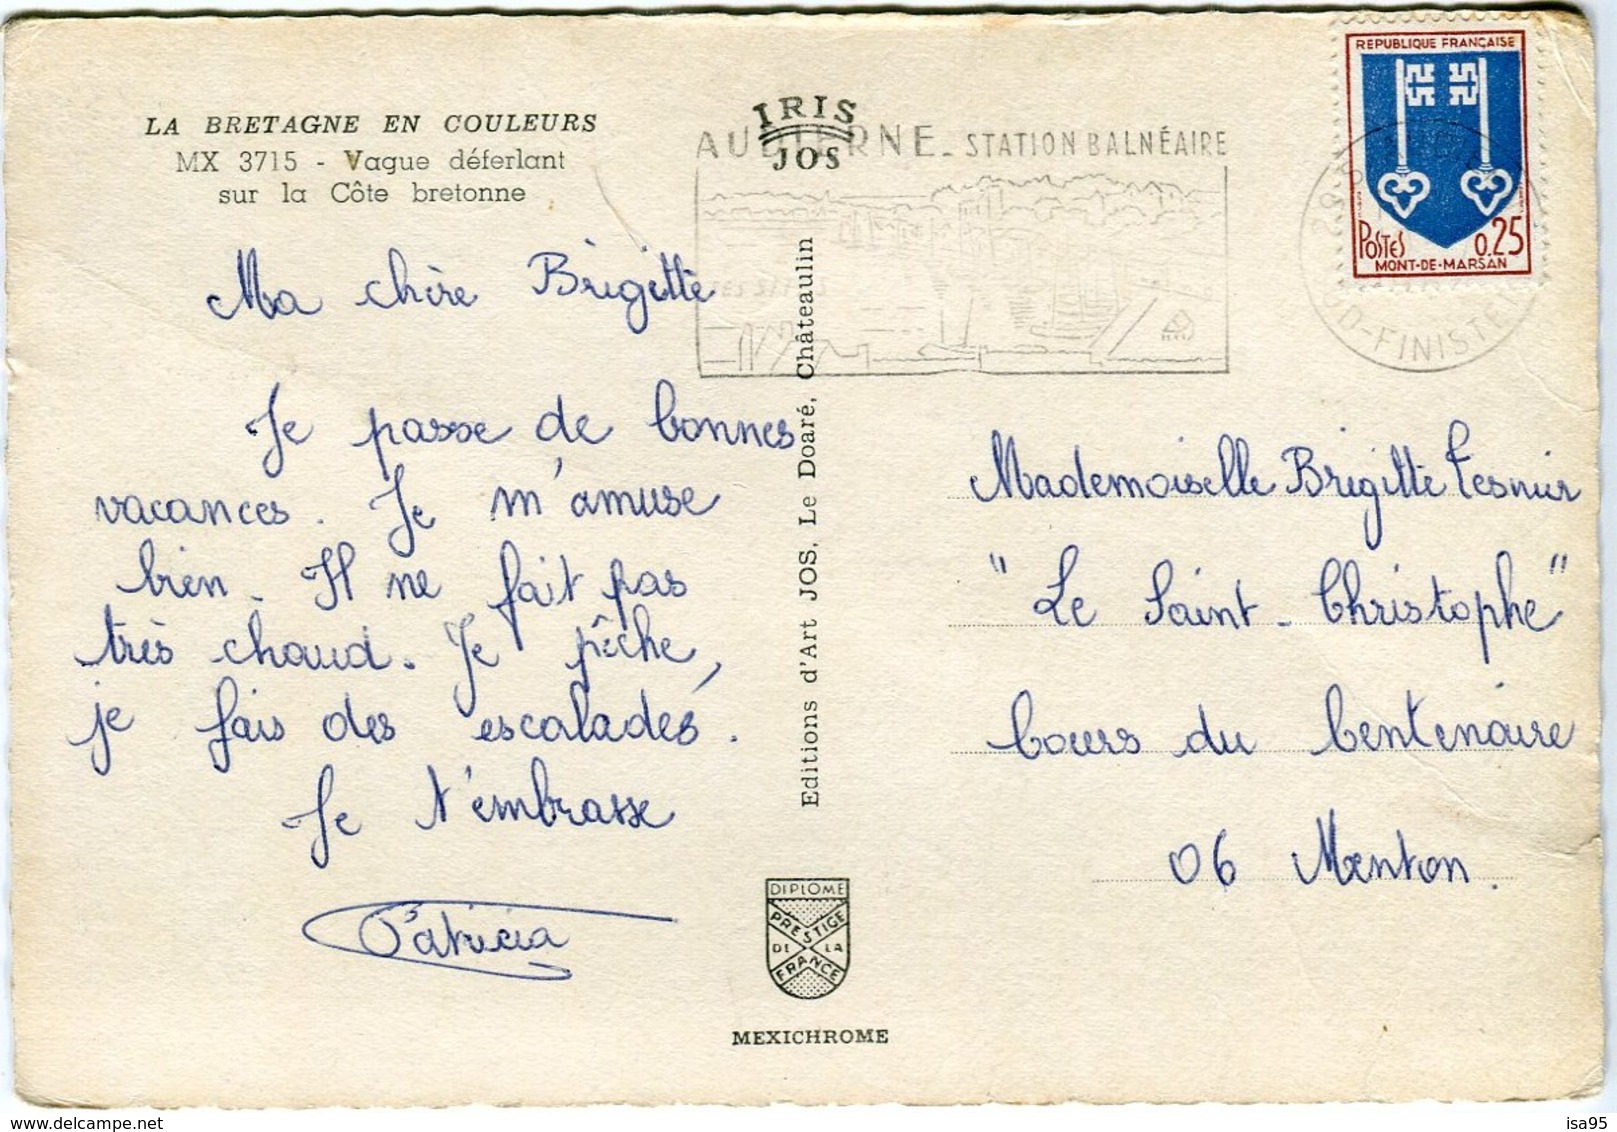 LA BRETAGNE EN COULEURS
MX 3715 - Vague déferlant
sur la Côte bretonne
Ma chère Brigitte
Je passe de bonnes
vacances. Je m'amuse
bien. Il ne fait pas
très chaud. Je pêche,
je fais des escalades.
Je t'embrasse
Patricia
IRIS
JOS
Editions d'Art JOS, Le Doaré, Châteaulin
DIPLOME
PRESTIGE
DE LA
FRANCE
MEXICHROME
AUDIERNE - STATION BALNÉAIRE
REPUBLIQUE FRANÇAISE
POSTES 0.25
MONT-DE-MARSAN
D-FINISTE
Mademoiselle Brigitte
"Le Saint-Christophe"
Cours du Centenaire
06 Menton.
isa95